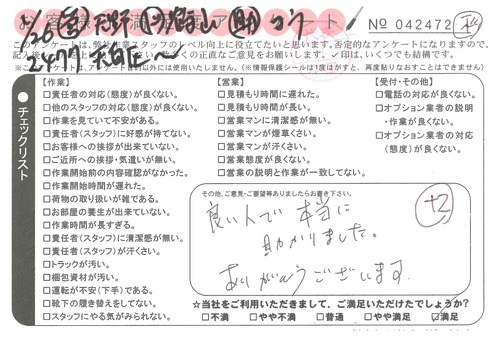 お客様不満足度アンケート
No 042472
このアンケートは、弊社作業スタッフのレベル向上に役立てたいと思います。否定的なアンケートになりますので、
ご意見をお願いします。✓印は、いくつでも結構です。
チェックリスト
【作業】
□責任者の対応(態度)が良くない。
□他のスタッフの対応(態度)が良くない。
□作業を見ていて不安がある。
□責任者(スタッフ)に好感が持てない。
□お客様への挨拶が出来ていない。
□ご近所への挨拶・気遣いが無い。
□作業開始前の内容確認がなかった。
□作業開始時間が遅れた。
□荷物の取り扱いが雑である。
□お部屋の養生が出来ていない。
□作業時間が長すぎる。
□責任者(スタッフ)に清潔感が無い。
□責任者(スタッフ)が汗くさい。
□トラックが汚い。
□梱包資材が汚い。
□運転が不安(下手)である。
□靴下の履き替えをしてない。
□スタッフにやる気がみられない。
【営業】
□見積もり時間に遅れた。
□見積もり時間が長い。
□営業マンに清潔感が無い。
□営業マンが煙草くさい。
□営業マンが汗くさい。
□営業態度が良くない。
□営業の説明と作業が一致してない。
【受付・その他】
□電話の対応が良くない。
□オプション業者の説明
・作業が良くない。
□オプション業者の対応
(態度)が良くない。
その他、ご意見・ご要望等ありましたらお書き下さい。
良い人で本当に
助かりました。
ありがとうございます
☆当社をご利用いただきまして、ご満足いただけたでしょうか?
□不満 □やや不満 □普通 □やや満足 ☑満足